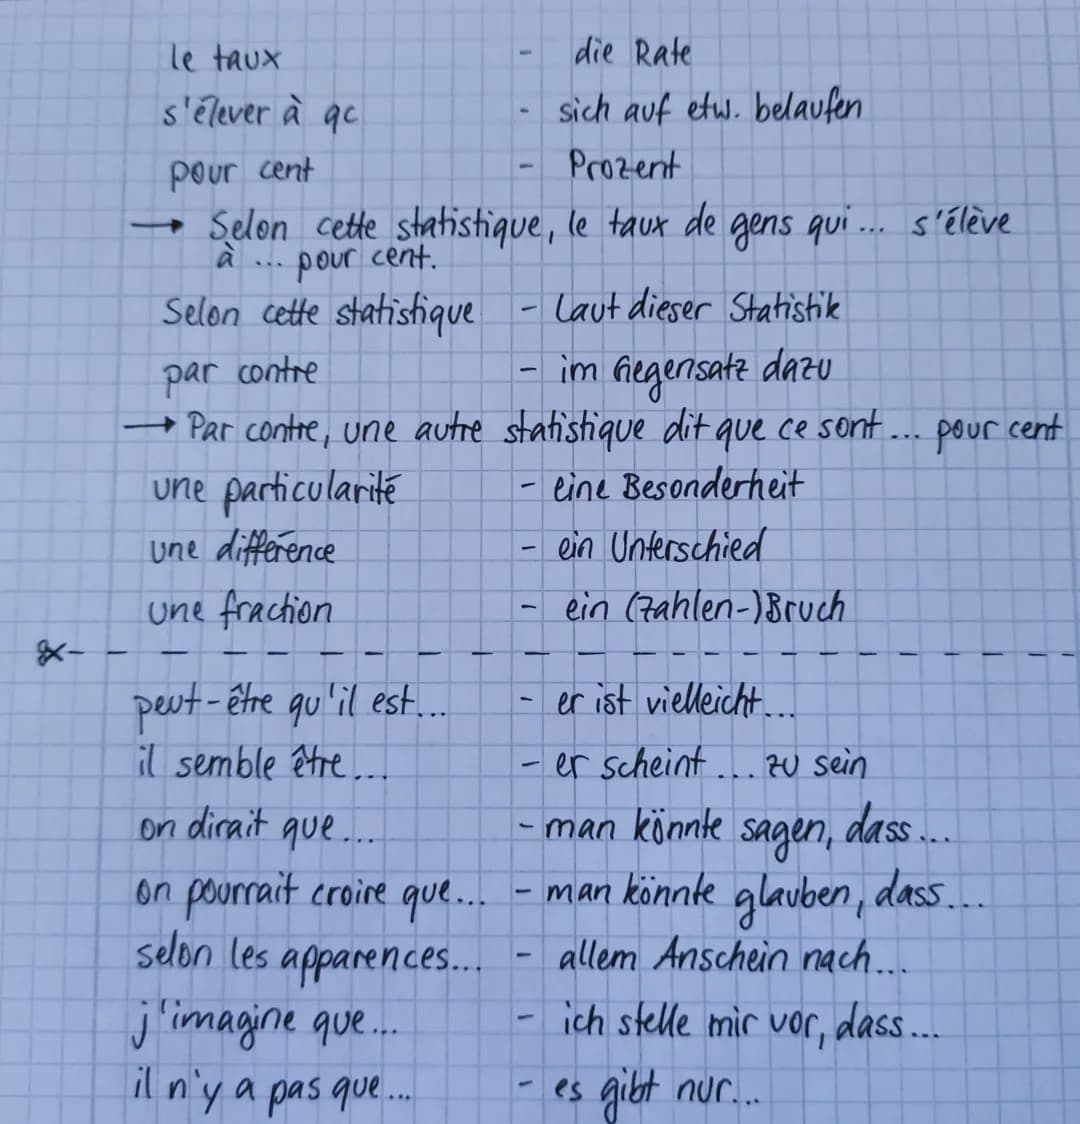 le taux - die Rate
s'élever à qc - sich auf etw. belaufen
pour cent - Prozent
→ Selon cette statistique, le taux de gens qui... s'élève
à ... pour cent.
Selon cette statistique - laut dieser Statistik
par contre - im Gegensatz dazu
→ Par contre, une autre statistique dit que ce sont ... pour cent
une particularité - eine Besonderheit
une différence - ein Unterschied
une fraction - ein (Zahlen-)Bruch
peut-être qu'il est... - er ist vielleicht...
il semble être... - er scheint ... zu sein
on dirait que... - man könnte sagen, dass...
on pourrait croire que... - man könnte glauben, dass...
selon les apparences... - allem Anschein nach...
j'imagine que... - ich stelle mir vor, dass...
il n'y a pas que... - es gibt nur...